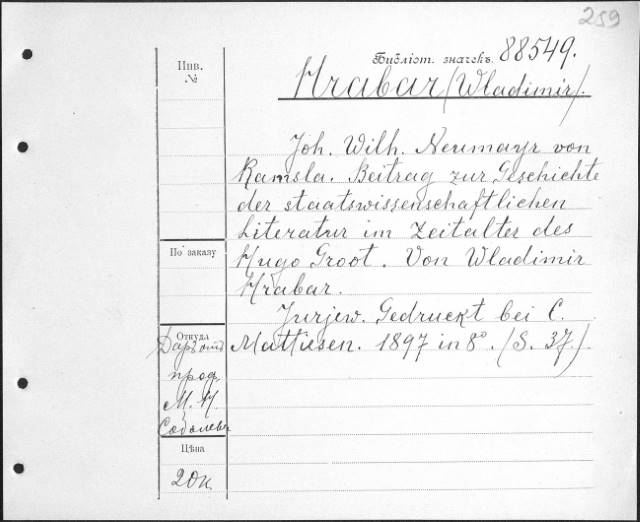 259
Библіот. значекъ 88549.
Инв.
№
Hrabar (Wladimir).
Joh. Wilh. Neumayr von
Ramsla. Beitrag zur Geschichte
der staatswissenschaftlichen
Literatur im Zeitalter des
По заказу
Hugo Groot. Von Wladimir
Hrabar.
Jurjew. Gedruckt bei C.
Mattiesen. 1897 in 8° (S. 37.)
Откуда
Даръ отъ
проф.
М. Н.
Соболева
Цѣна
20к